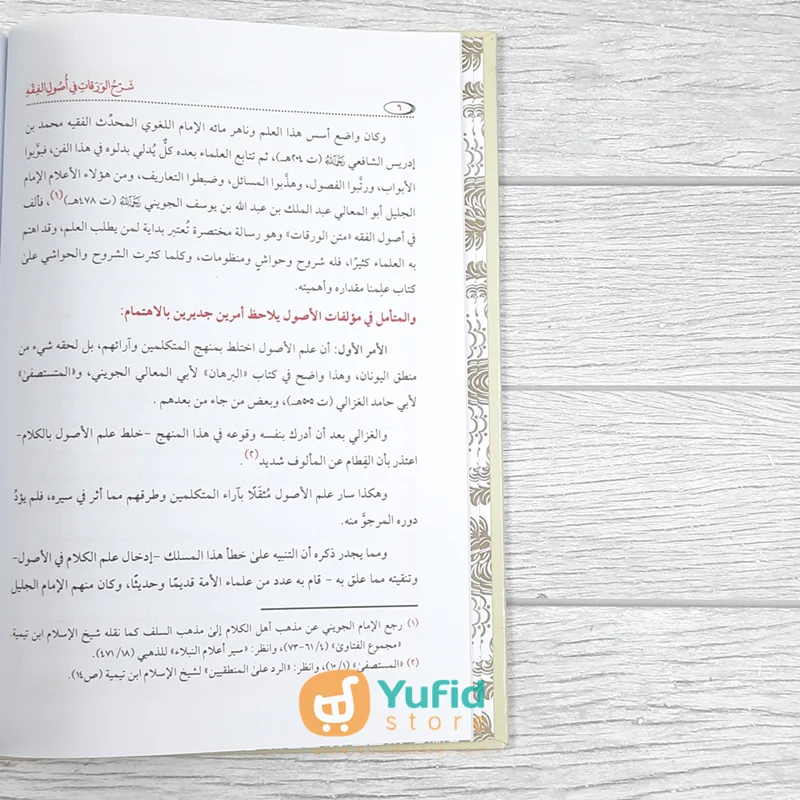 شَرْحُ الوَرَقَاتِ فِي أُصُولِ الفِقْهِ
٦
وكان واضع أسس هذا العلم وناهر مائه الإمام اللغوي المحدِّث الفقيه محمد بن
إدريس الشافعي رَحِمَهُ اللَّهُ (ت ٢٠٤هـ)، ثم تتابع العلماء بعده كلٌّ يُدلي بدلوه في هذا الفن، فبوَّبوا
الأبواب، ورتَّبوا الفصول، وهذَّبوا المسائل، وضبطوا التعاريف، ومن هؤلاء الأعلام الإمام
الجليل أبو المعالي عبد الملك بن عبد الله بن يوسف الجويني رَحِمَهُ اللَّهُ (ت ٤٧٨هـ)(١)، فألف
في أصول الفقه «متن الورقات» وهو رسالة مختصرة تُعتبر بداية لمن يطلب العلم، وقد اهتم
به العلماء كثيرًا، فله شروح وحواشٍ ومنظومات، وكلما كثرت الشروح والحواشي علىٰ
كتاب علِمنا مقداره وأهميته.
والمتأمل في مؤلفات الأصول يلاحظ أمرين جديرين بالاهتمام:
الأمر الأول: أن علم الأصول اختلط بمنهج المتكلمين وآرائهم، بل لحقه شيء من
منطق اليونان، وهذا واضح في كتاب «البرهان» لأبي المعالي الجويني، و«المتستصفىٰ»
لأبي حامد الغزالي (ت ٥٠٥هـ)، وبعض من جاء من بعدهم .
والغزالي بعد أن أدرك بنفسه وقوعه في هذا المنهج -خلط علم الأصول بالكلام-
اعتذر بأن الفِطام عن المألوف شديد(٢).
وهكذا سار علم الأصول مُثقَلًا بآراء المتكلمين وطرقهم مما أثر في سيره، فلم يؤدِّ
دوره المرجوَّ منه.
ومما يجدر ذكره أن التنبيه علىٰ خطأ هذا المسلك -إدخال علم الكلام في الأصول-
وتنقيته مما علق به - قام به عدد من علماء الأمة قديمًا وحديثًا، وكان منهم الإمام الجليل
(١) رجع الإمام الجويني عن مذهب أهل الكلام إلىٰ مذهب السلف كما نقله شيخ الإسلام ابن تيمية.
«مجموع الفتاوىٰ» (٤/ ٦١-٧٣)، وانظر: «سير أعلام النبلاء» للذهبي (١٨/ ٤٧١).
(٢) «المستصفىٰ» (١/ ١٠)، وانظر: «الرد علىٰ المنطقيين» لشيخ الإسلام ابن تيمية (ص١٤).
Yufid
store